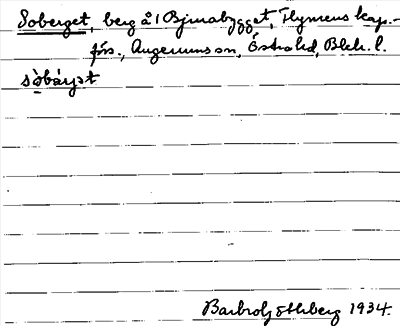 Soberget, berg å 1 Bjurabygget, Flymens kap.-
förs., Augerums sn, Östra hd, Blek. l.
sòbæ̀rjət
Barbro Söderberg 1934.